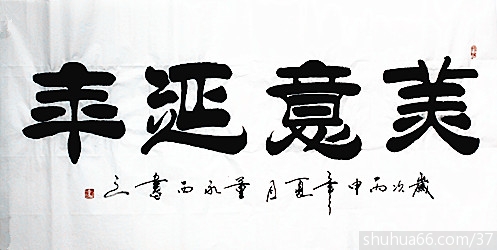 美意延年
歲次丙申年夏月董永西書之
shuhua66.com/37